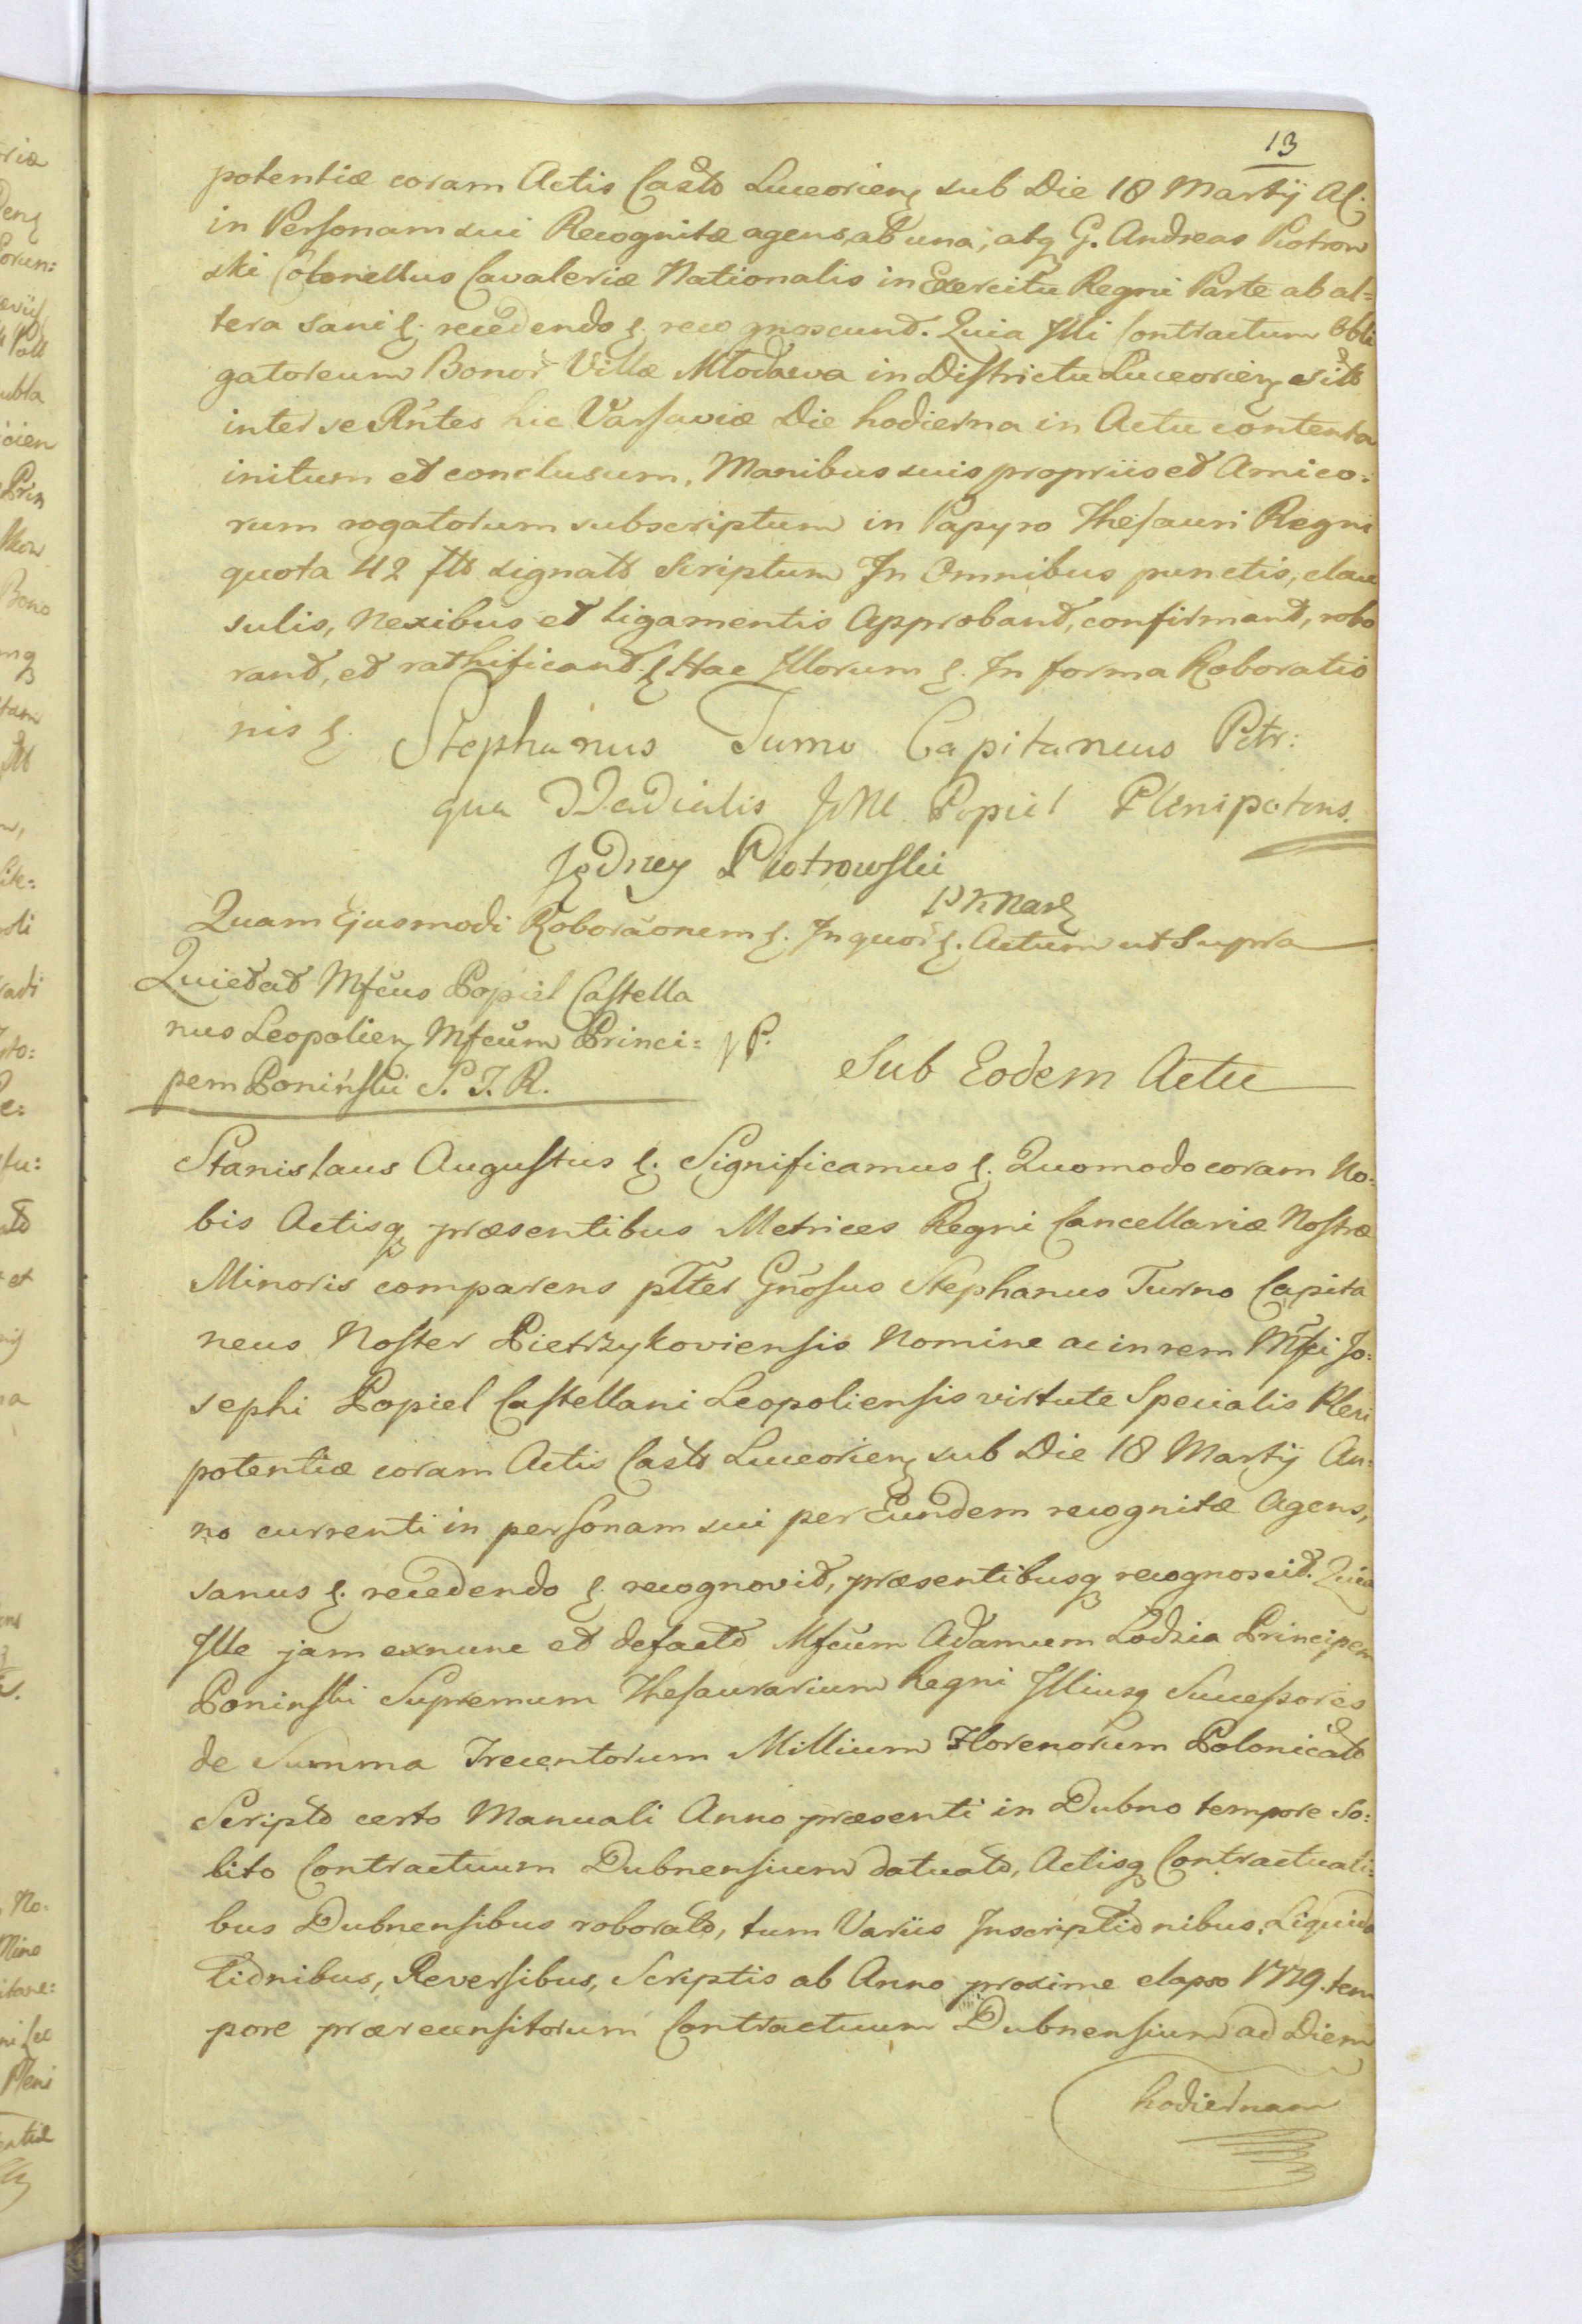 13
potentiæ coram Actis Castr Luceorien sub Die 18 Martij Ac:
in Personam sui Recognitæ agens, ab una, atq G. Andreas Piotrow
ski Colonellus Cavaleriæ Nationalis in Exercitu Regni Parte ab al=
tera sani &. recedendo &. recognoscunt. Quia Illi Contractum Obli
gatoreum Bonor Villæ Młodawa in Districtu Luceorien sit
inter se Rntes hic Varsaviæ Die hodierna in Actu contenta
initum et conclusum, Manibus suis propriis et Amico=
rum rogatorum subscriptum in Papyro Thesauri Regni
quota 42 fll signato Scriptum In Omnibus punctis, clau
sulis, Nexibus et ligamentis Approband, confirmand, robo
rand, et rathificand. & Hac Illorum &. In forma Roboratio
nis &.
Stephanus Turno Capitaneus Petr:
qua Specialis JWW Popiel Plenipotens.
Jędrzey Piotrowski
PKNar
Quam Ejusmodi Roboraonem &. In quor &. Actum ut Supra
Quietat Mfcus Popiel Castella
nus Leopolien Mfcum Princi=
pem Poniński S. T. R.
P.
Sub Eodem Actu
Stanislaus Augustus &. Significamus &. Quomodo coram No=
bis Actisq præsentibus Metrices Regni Cancellariæ Nostræ
Minoris comparens pltter Gnosus Stephanus Turno Capita
neus Noster Pietrzykoviensis Nomine ac in rem Mfci Jo=
sephi Popiel Castellani Leopoliensis virtute Specialis Pleni
potentiæ coram Actis Castr Luceorien sub Die 18 Martij An=
no currenti in personam sui per Eundem recognitæ Agens,
sanus &. recedendo &. recognovit, præsentibusq recognoscit. Quia
Ille jam exnunc et defacto Mfcum Adamum Łodzia Principem
Poniński Supremum Thesaurarium Regni Illiusq Successores
de Summa Trecentorum Millium Florenorum Polonicalo
Scripto certo Manuali Anno præsenti in Dubno tempore so=
lito Contractuum Dubnensium datuato, Actisq Contractuali=
bus Dubnensibus roborato, tum Variis Inscriptionibus, Liquida
tionibus, Reversibus, Scriptis ab Anno proxime elapso 1779. tem
pore præcensitorum Contractuum Dubnensium ad Diem
hodiernam